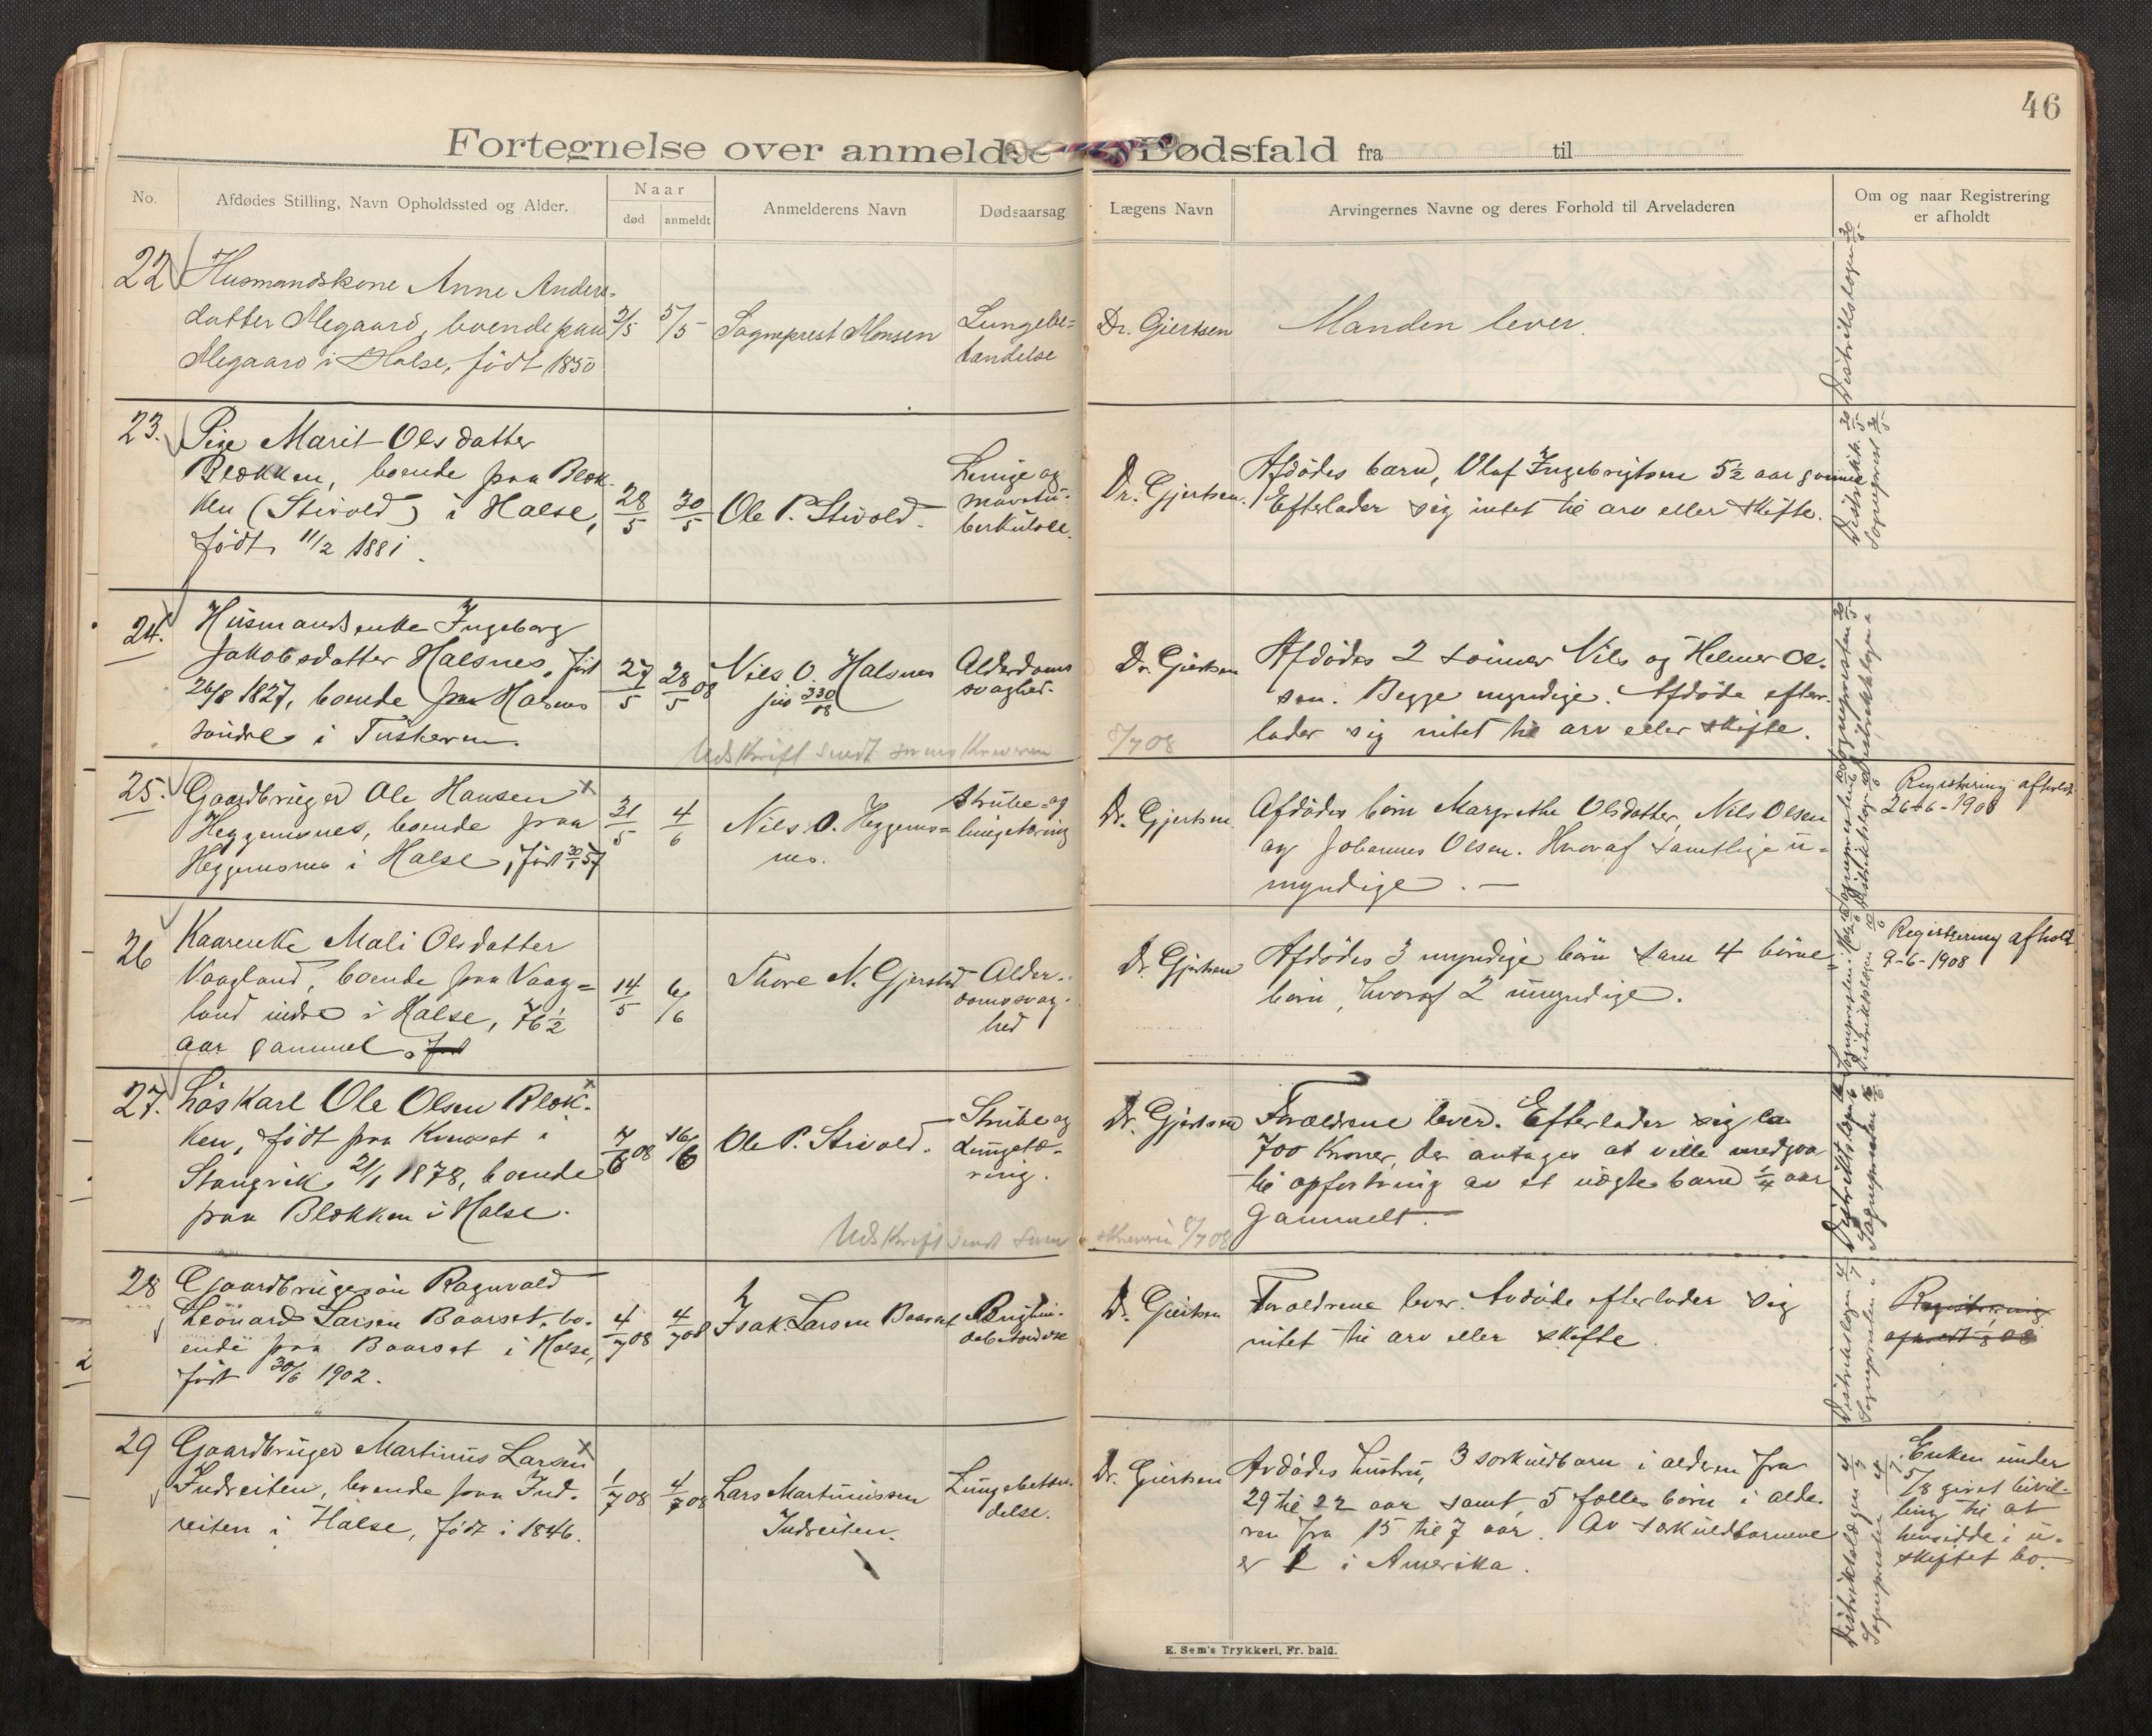 46
Fortegnelse over anmeldte Dødsfald fra til
No.
Afdødes Stilling, Navn Opholdssted og Alder.
Naar
død
anmeldt
Anmelderens Navn
Dødsaarsag
Lægens Navn
Arvingernes Navne og deres Forhold til Arveladeren
Om og naar Registrering
er afholdt
22 Husmandskone Anne Anders-
datter Megaard, boende paa
Megaard i Halse, født 1850
2/5 5/5
Sogneprest Monsen
Lungebe-
tændelse
Dr. Gjertsen
Manden lever.
Distriktslægen 30/5
23. Pige Marit Olsdatter
Blokken, boende paa Blok-
ken (Stivold) i Halse,
født 11/2 1881.
28/5 30/5
Ole P. Stivold.
Lunge og
mavetu-
berkulose.
Dr. Gjertsen.
Afdødes barn, Olaf Ingebrigtsen 5½ aar gammel
Efterlader sig intet til arv eller skifte.
Distrikts. 30/5
Sogneprest 30/5
24. Husmandsenke Ingeborg
Jakobsdatter Halsnes, født
26/8 1827, boende paa Halsnes
søndre i Tusteren.
27/5 28/5 08
Nils O. Halsnes
jno 330/08
Alderdoms
svaghed.
Udskrift sendt sorenskriveren
8/7 08
Dr. Gjertsen
Afdødes 2 sønner Nils og Helmer Ol-
sen. Begge myndige. Afdøde efter-
lader sig intet til arv eller skifte.
Sognepresten 30/5
Distriktslægen "
25. Gaardbruger Ole Hansen x
Heggemsnes, boende paa
Heggemsnes i Halse, født 30/1 57
31/5 4/6
Nils O. Heggems=
nes.
Strube- og
lungetæring
Dr. Gjertsen
Afdødes børn Margrethe Olsdatter, Nils Olsen
og Johannes Olsen. Hvoraf samtlige u-
myndige. —
Registrering afholdt
26-6-1908
26 Kaarenke Mali Olsdatter
Vaagland, boende paa Vaag=
land indre i Halse, 76½
aar gammel.
14/5 6/6
Thore N. Gjerstad
Alder-
domssvag-
hed
Dr. Gjertsen
Afdødes 3 myndige børn samt 4 børne=
børn, hvoraf 2 umyndige.
Registrering afhold
9-6-1908
27. Løskarl Ole Olsen Blok- x
ken, født paa Kruset i
Stangvik 21/1 1878, boende
paa Blokken i Halse.
7/6 08 16/6
Ole P. Stivold.
Strube og
Lungetæ-
ring.
Udskrift sendt soren
skriveren 8/7 08
Dr. Gjertsen
Forældrene lever. Efterlader sig ca
700 Kroner, der antages at ville medgaa
til opfostring av et uægte barn ¼ aar
gammelt.
Distriktslægen 16/6
Sognepresten 16/6
28 Gaardbrugersøn Ragnvald
Leonard Larsen Baarset, bo-
ende paa Baarset i Halse,
født 30/6 1902.
4/7 08 4/7 08
Isak Larsen Baarset
Brysthin-
debetændelse
Dr. Gjertsen
Forældrene lever. Avdøde efterlader sig
intet til arv eller skifte.
Distriktslægen 4/7
Sognepresten "
Registrering
29 Gaardbruger Martinus Larsen x
Indreiten, boende paa Ind-
reiten i Halse, født i 1846.
1/7 08 4/7 08
Lars Martinussen
Indreiten.
Lungebetæn-
delse.
Dr. Gjertsen
Avdødes hustru, 3 særkuldbarn i alderen fra
29 til 22 aar samt 5 fælles børn i alde-
ren fra 15 til 7 aar. Av særkuldbarnene
er 2 i Amerika.
Distriktslægen 4/7
Sognepresten 4/7
Enken under
5/8 givet bevil-
ling til at
hensidde i u-
skiftet bo.
E. Sem's Trykkeri, Fr.hald.